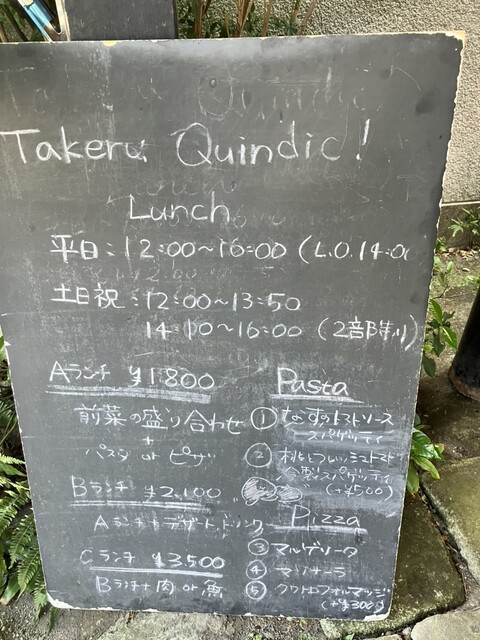 Takeru Quindic!
Lunch
平日:12:00~16:00 (L.O.14:00
土日祝:12:00~13:50
14:10~16:00 (2部制)
Aランチ ¥1800
前菜の盛り合わせ
+
パスタ or ピザ
Bランチ ¥2,100
Aランチ+デザート、ドリンク
Cランチ ¥3,500
Bランチ+肉 or 魚
Pasta
① なすのトマトソース
スパゲッティ
② 桃とフレッシュトマト
冷製スパゲッティ
(+¥500)
Pizza
③ マルゲリータ
④ マリナーラ
⑤ クワトロフォルマッジ
(+¥300)